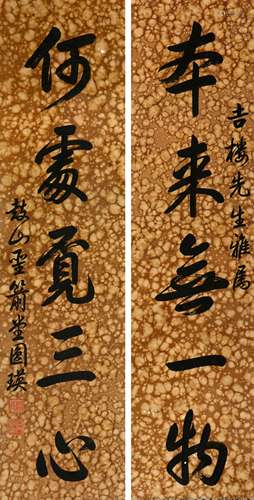 吉楼先生雅属
本来無一物
何處覓三心
鼓山聖箭堂圆瑛